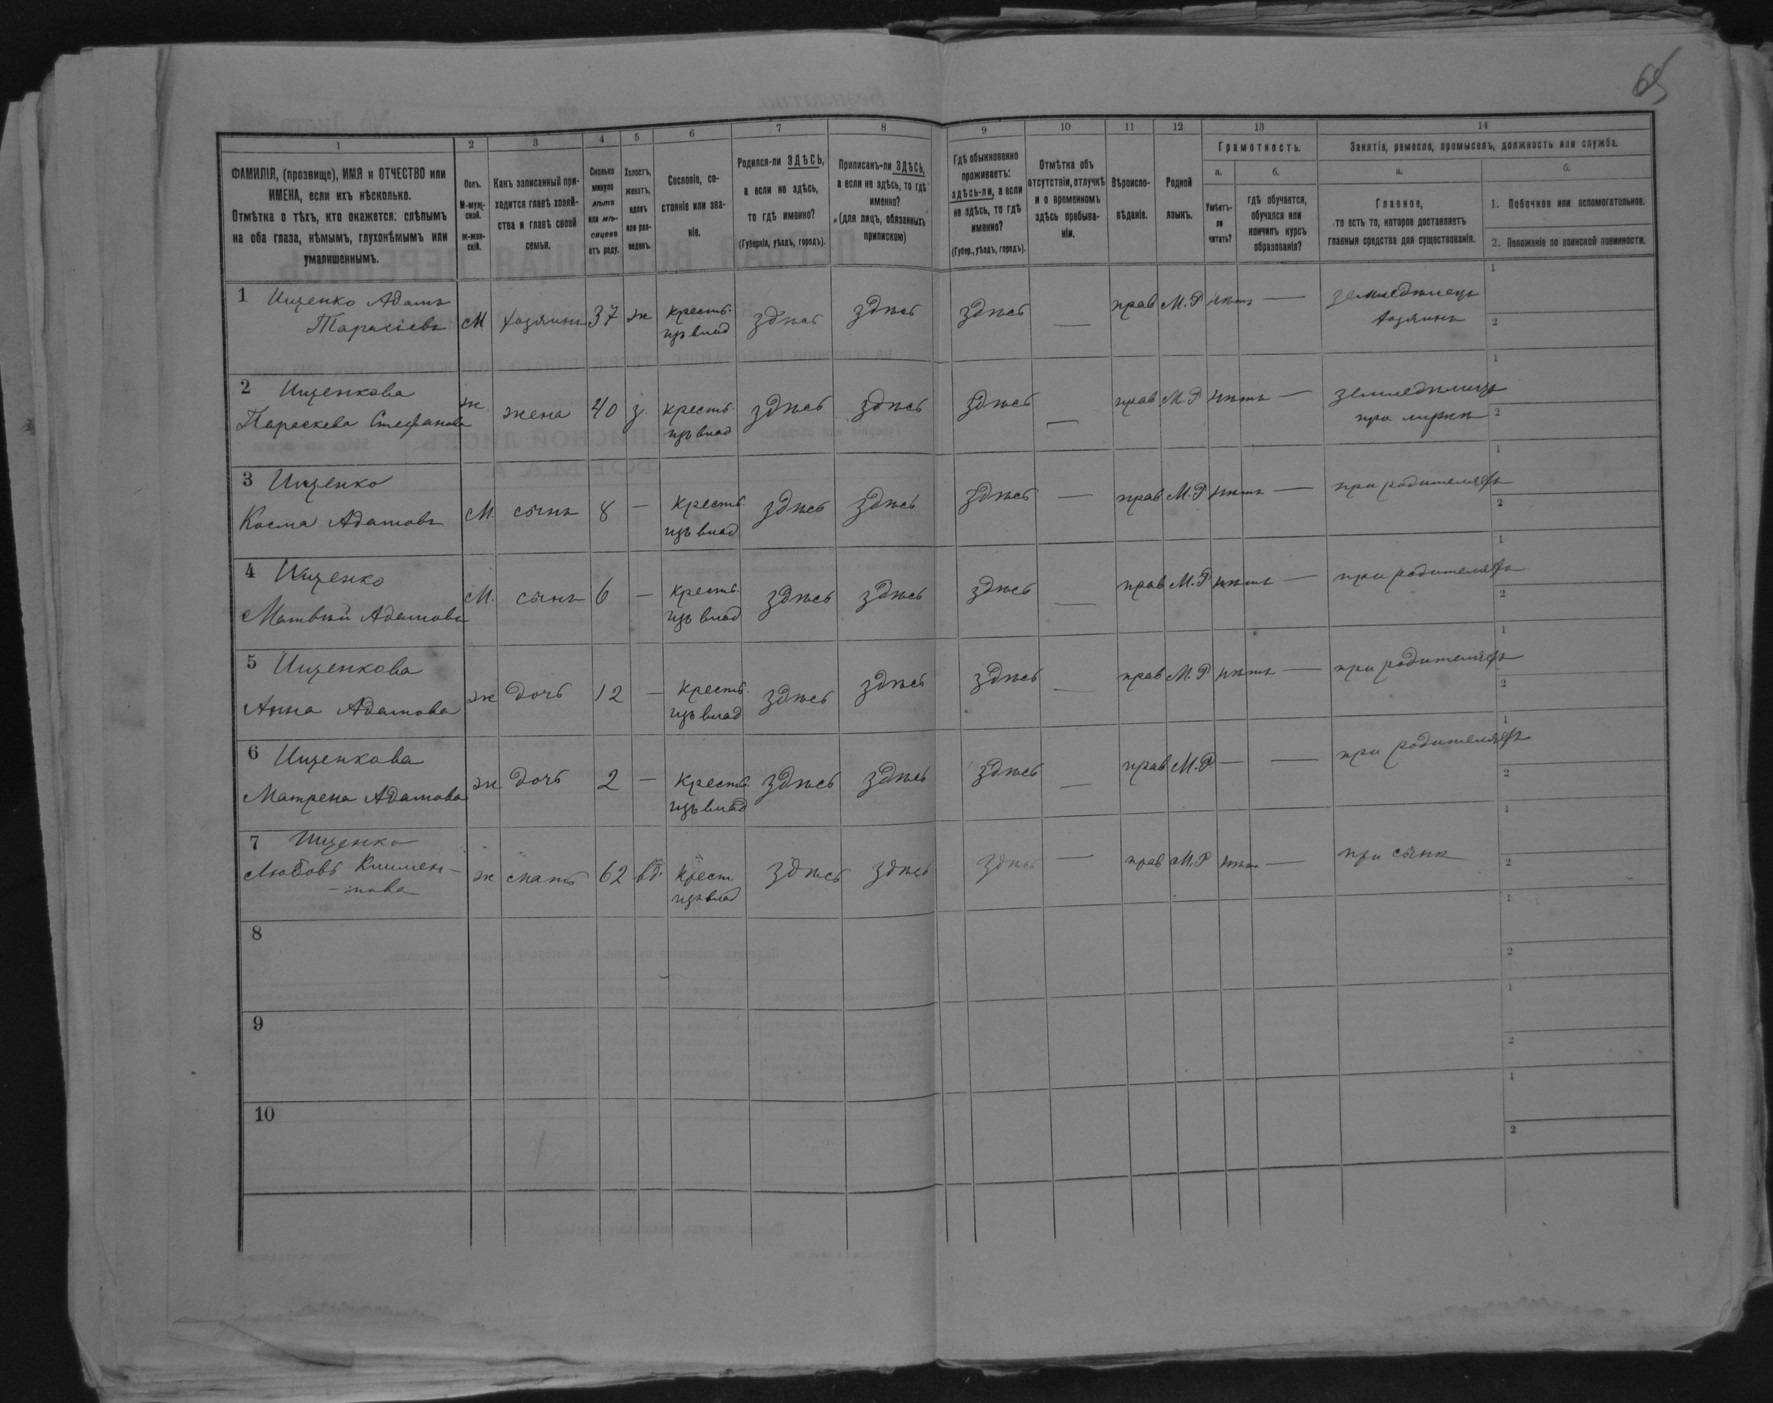 65
1 2 3 4 5 6 7 8 9 10 11 12 13 14
ФАМИЛІЯ, (прозвище), ИМЯ и ОТЧЕСТВО или
ИМЕНА, если ихъ нѣсколько.
Отмѣтка о тѣхъ, кто окажется: слѣпымъ
на оба глаза, нѣмымъ, глухонѣмымъ или
умалишеннымъ.
Полъ.
М-муж-
ской.
ж-жен-
скій.
Какъ записанный при-
ходится главѣ хозяй-
ства и главѣ своей
семьи.
Сколько
минуло
лѣтъ
или мѣ-
сяцевъ
отъ роду.
Холостъ,
женатъ,
вдовъ
или раз-
веденъ.
Сословіе, со-
стояніе или зва-
ніе.
Родился-ли ЗДѢСЬ,
а если не здѣсь,
то гдѣ именно?
(Губернія, уѣздъ, городъ).
Приписанъ-ли ЗДѢСЬ,
а если не здѣсь, то гдѣ
именно?
(для лицъ, обязанныхъ
припискою)
Гдѣ обыкновенно
проживаетъ:
здѣсь-ли, а если
не здѣсь, то гдѣ
именно?
(Губер., уѣздъ, городъ).
Отмѣтка объ
отсутствіи, отлучкѣ
и о временномъ
здѣсь пребыва-
ніи.
Вѣроиспо-
вѣданіе.
Родной
языкъ.
Грамотность.
а.
Умѣетъ-
ли
читать?
б.
гдѣ обучается,
обучался или
кончилъ курсъ
образованія?
Занятіе, ремесло, промыселъ, должность или служба.
а.
Главное,
то есть то, которое доставляетъ
главныя средства для существованія.
б.
1. Побочное или вспомогательное.
2. Положеніе по воинской повинности.
1 Ищенко Адамъ М хозяинъ 37 ж крестьян. здѣсь здѣсь здѣсь — прав М.Р нѣтъ — земледѣлецъ 1
Тарасіевъ изъ влад хозяинъ 2
2 Ищенкова ж жена 40 з. крестьян. здѣсь здѣсь здѣсь — прав М.Р нѣтъ — 1
Параскева Стефанова изъ влад при мужѣ 2
3 Ищенко М. сынъ 8 — крестьян. здѣсь здѣсь здѣсь — прав М.Р нѣтъ — при родителяхъ 1
Косма Адамовъ изъ влад 2
4 Ищенко М. сынъ 6 — крестьян. здѣсь здѣсь здѣсь — прав М.Р нѣтъ — при родителяхъ 1
Матвѣй Адамовъ изъ влад 2
5 Ищенкова ж дочь 12 — крестьян. здѣсь здѣсь здѣсь — прав М.Р нѣтъ — при родителяхъ 1
Анна Адамова изъ влад 2
6 Ищенкова ж дочь 2 — крестьян. здѣсь здѣсь здѣсь — прав М.Р — — при родителяхъ 1
Матрена Адамова изъ влад 2
7 Ищенко ж мать 62 вд. крест. здѣсь здѣсь здѣсь — прав М.Р нѣтъ — при сынѣ 1
Любовь Климен- изъ влад 2
-това
8 1
2
9 1
2
10 1
2